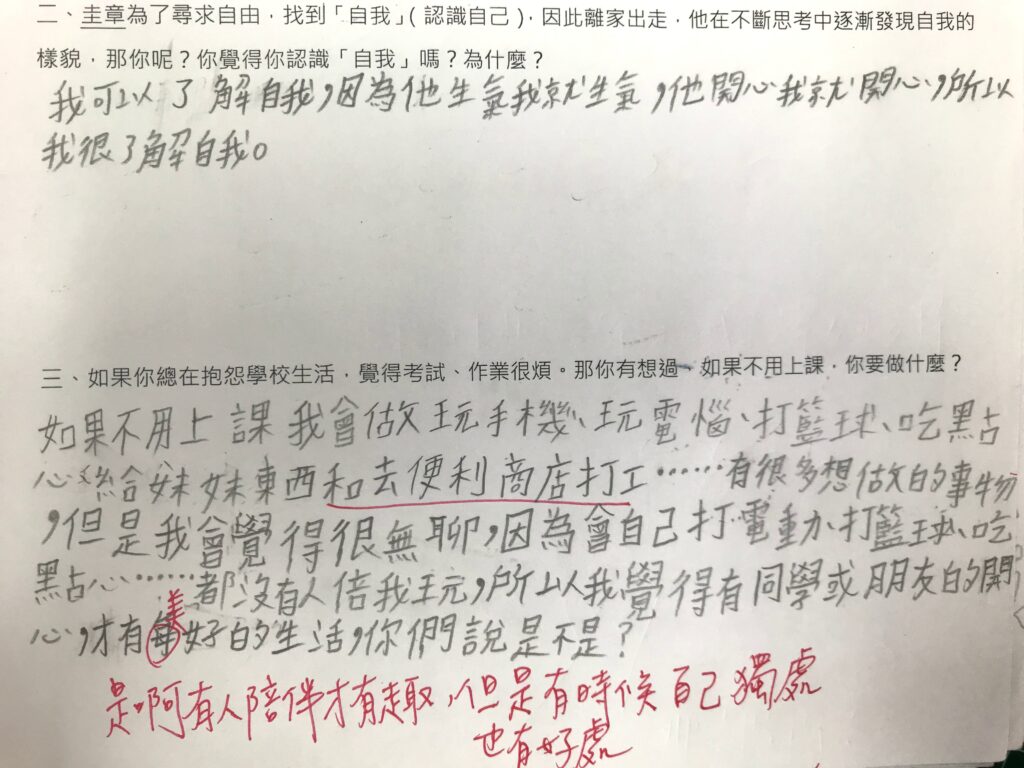 二、圭章為了尋求自由，找到「自我」(認識自己)，因此離家出走，他在不斷思考中逐漸發現自我的
樣貌，那你呢？你覺得你認識「自我」嗎？為什麼？
我可以了解自我，因為他生氣我就生氣，他開心我就開心，所以
我很了解自我。
三、如果你總在抱怨學校生活，覺得考試、作業很煩。那你有想過，如果不用上課，你要做什麼？
如果不用上課我會做玩手機、玩電惱、打籃球、吃點
心、給妹妹東西和去便利商店打工……有很多想做的事物
，但是我會覺得很無聊，因為會自己打電動、打籃球、吃
點心……都沒有人倍我玩，所以我覺得有同學或朋友的開
心，才有每好的生活，你們說是不是？
美
是啊有人陪伴才有趣，但是有時候自己獨處
也有好處